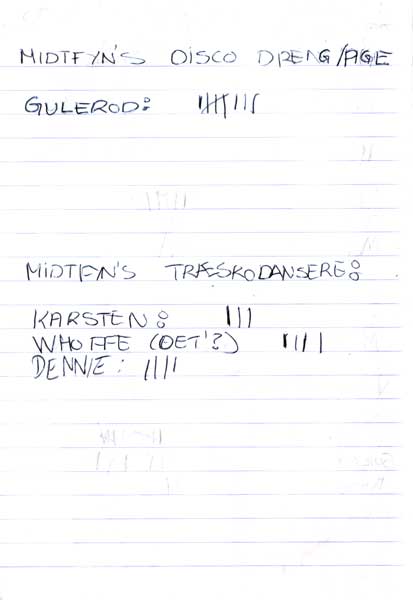 MIDTFYN'S DISCO DRENG/PIGE
GULEROD: |||| |||
MIDTFYN'S TRÆSKODANSERE:
KARSTEN: |||
WHOFFE (DET'?) ||||
DENNIE: ||||